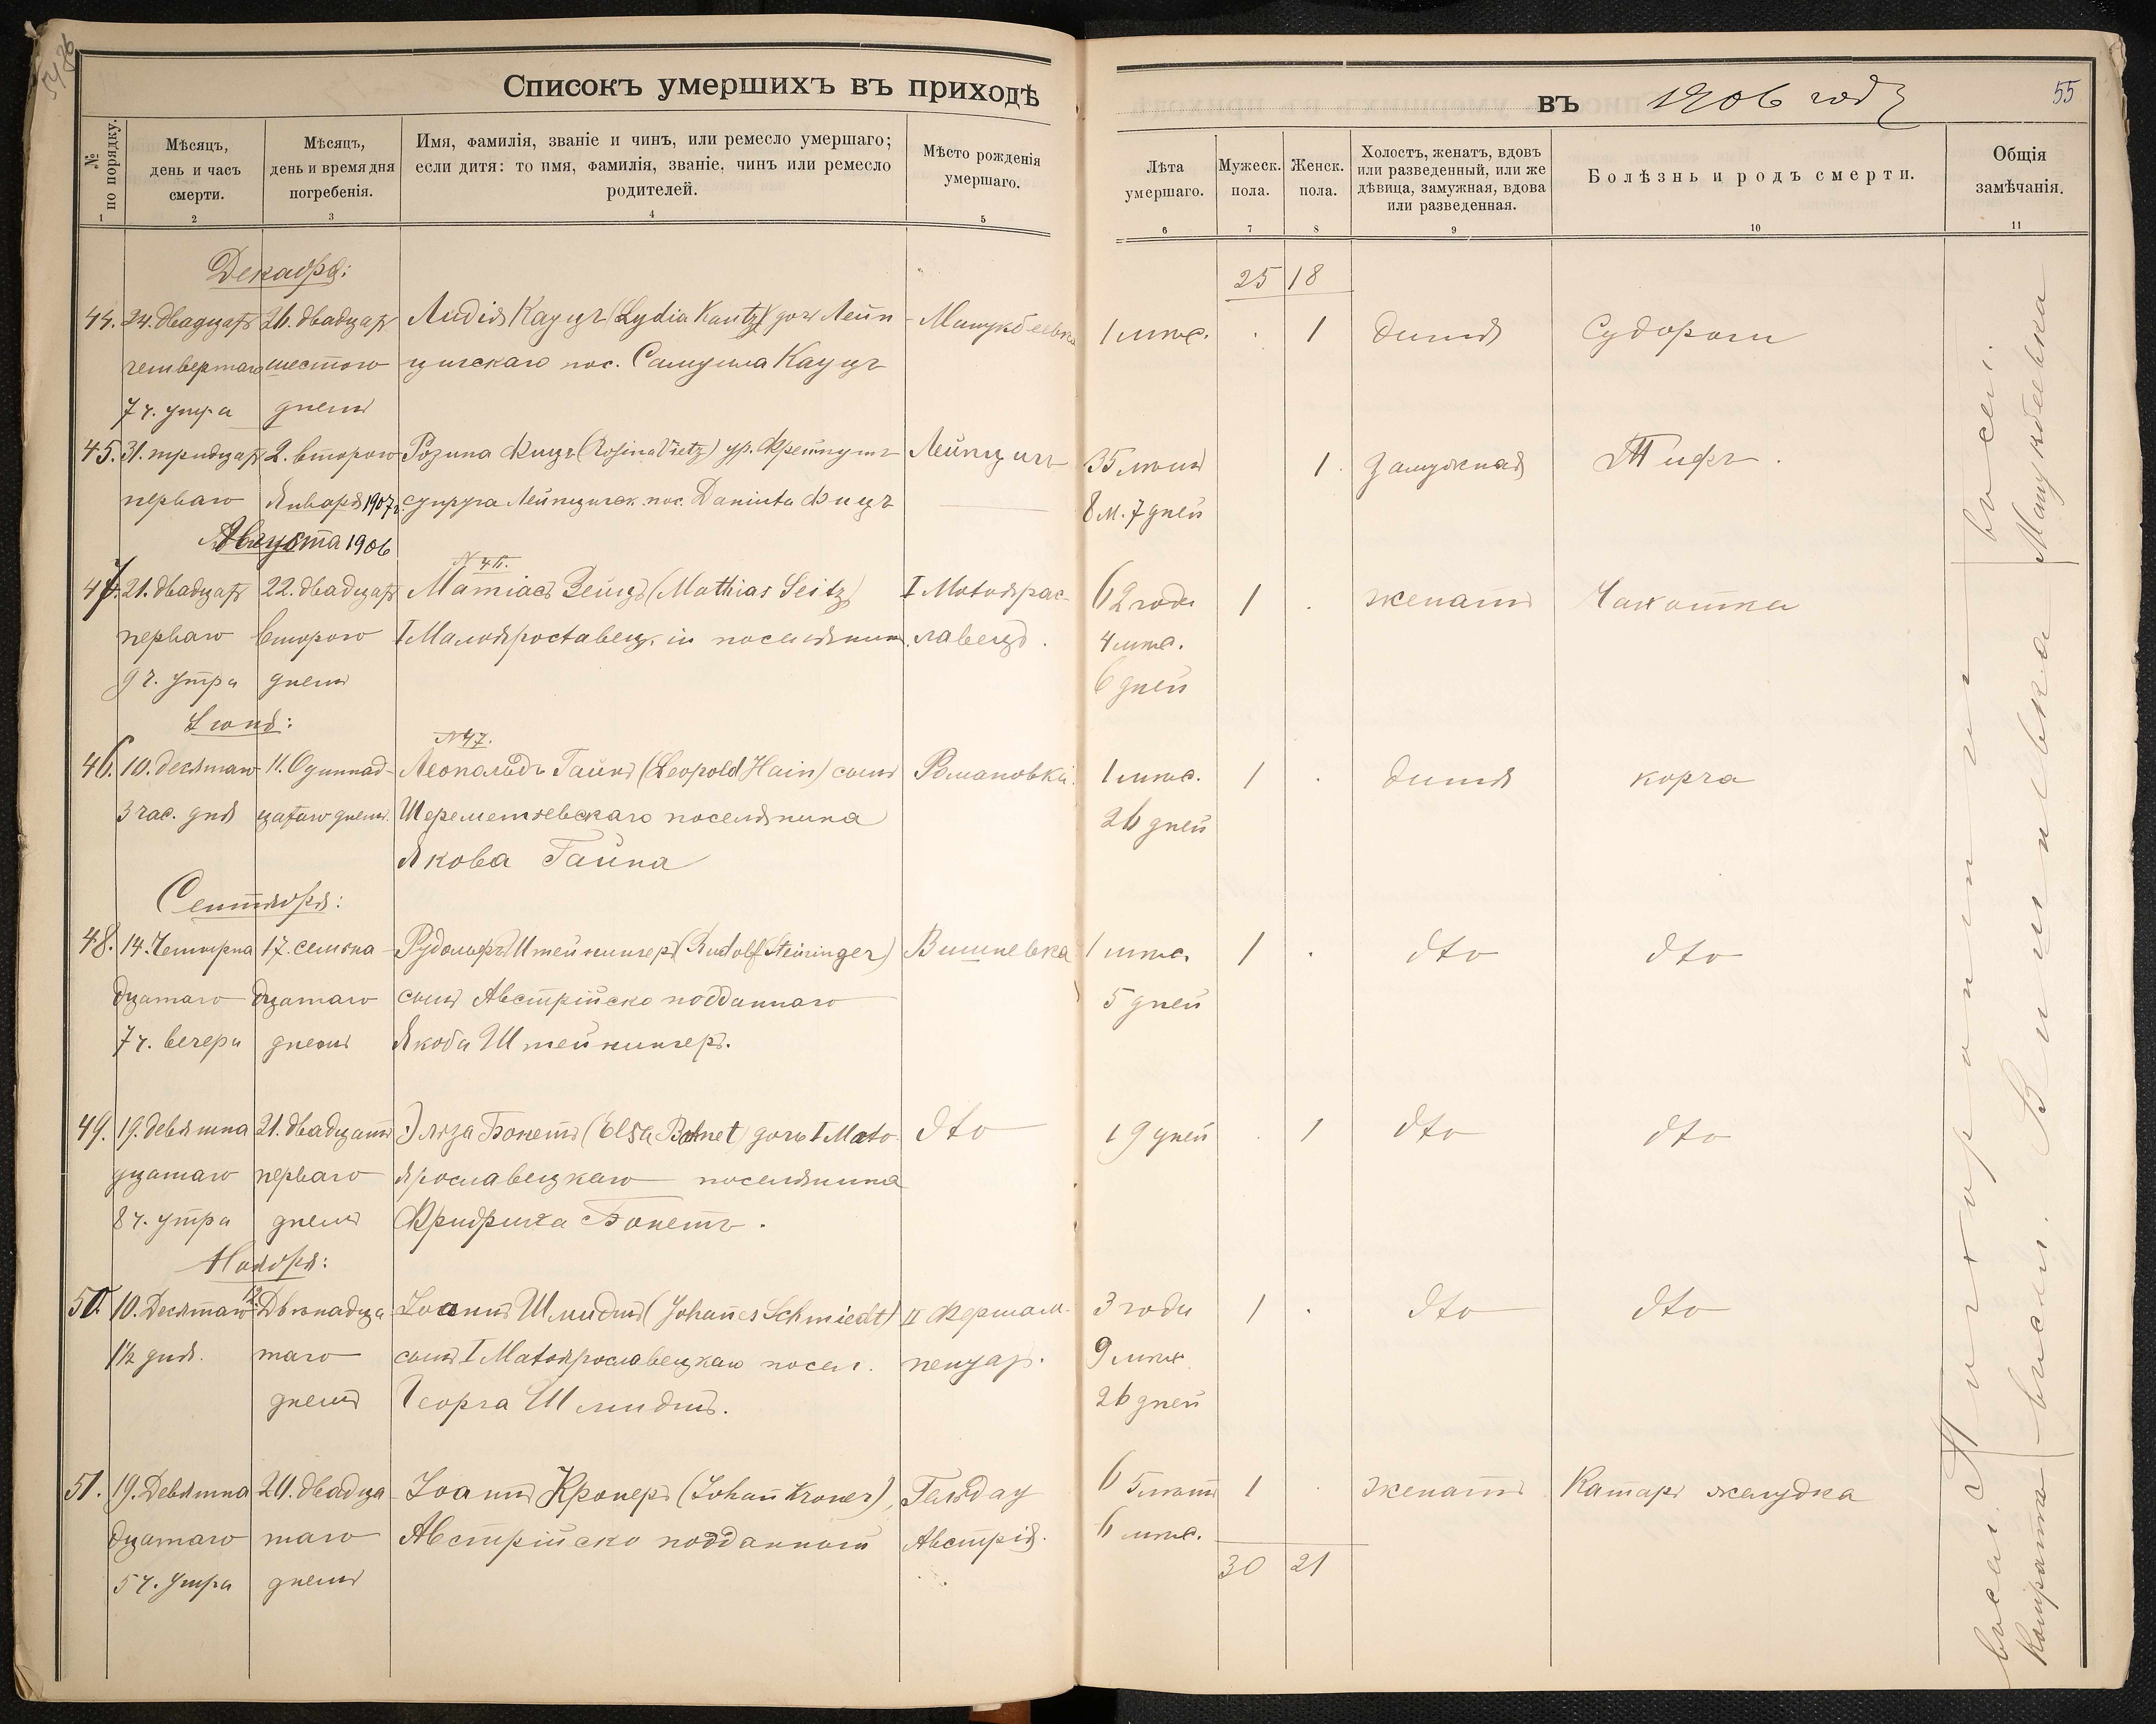 Списокъ умершихъ въ приходѣ
въ 1906 году
55
№ по порядку.
Мѣсяцъ, день и часъ смерти.
Мѣсяцъ, день и время дня погребенія.
Имя, фамилія, званіе и чинъ, или ремесло умершаго; если дитя: то имя, фамилія, званіе, чинъ или ремесло родителей.
Мѣсто рожденія умершаго.
Лѣта умершаго.
Мужеск. пола.
Женск. пола.
Холостъ, женатъ, вдовъ или разведенный, или же дѣвица, замужная, вдова или разведенная.
Болѣзнь и родъ смерти.
Общія замѣчанія.
1 2 3 4 5 6 7 8 9 10 11
Декабря:
25 18
44. 24. двадцать 26. двадцать Лидія Кауцъ (Lydia Kautz) дочь Лейп- 1 мѣс. . 1 дитя Судороги
четвертаго шестого цигскаго пос. Самуила Кауцъ
7 ч. утра днемъ
45. 31. тридцать 2. второго Розина Фицъ (Rosina Vietz) ур. Лейпцигъ 35 лѣтъ 1 замужная Тифъ.
перваго Января 1907 г. супруга Лейпцигск. пос. Даніила Фицъ 8 м. 7 дней
Августа 1906
N 46.
47. 21. двадцать 22. двадцать Матіасъ Зейцъ (Mathias Seitz) I Малояросс- 62 года 1 . женатъ Чахотка
перваго второго I Малоярославецкій поселянинъ. лавецъ. 4 мѣс.
9 ч. утра днемъ 6 дней
Іюня:
N 47.
46. 10. десятаго 11. Одиннад- Леопольдъ Гайнъ (Leopold Hain) сынъ Романовка 1 мѣс. 1 . дитя корча
3 час. дня цатаго днемъ. Шереметьевскаго поселянина 26 дней
Якова Гайна
Сентября:
48. 14. Четырна 17. семьна Рудольфъ Штейнингеръ (Rudolf Steininger) Вишневка 1 мѣс. 1 . dto dto
дцатаго дцатаго сынъ Австрійско подданнаго 5 дней
7 ч. вечера днемъ Якоба Штейнингеръ.
49. 19. девятна 21. двадцать Эльза Бонетъ (Elsa Bohnet) дочь I Мало- dto 19 дней . 1 dto dto
дцатаго перваго ярославецкаго поселянина
8 ч. утра днемъ Фридриха Бонетъ.
Ноября:
50. 10. Десятаго 12. Двѣнадца Іоаннъ Шмидтъ (Johañes Schmiedt) II Фершам- 3 года 1 . dto dto
1½ дня. таго сынъ I Малоярославецкаго посел. пенуаз. 9 мѣс.
днемъ Георга Шмидтъ. 26 дней
51. 19. Девятна 20. двадца Іоаннъ Кронеръ (Johañ Kroner), 65 лѣтъ 1 . женатъ Катаръ желудка
дцатаго таго Австрійско подданный Австрія. 6 мѣс.
5 ч. утра днемъ
30 21
Вишневка